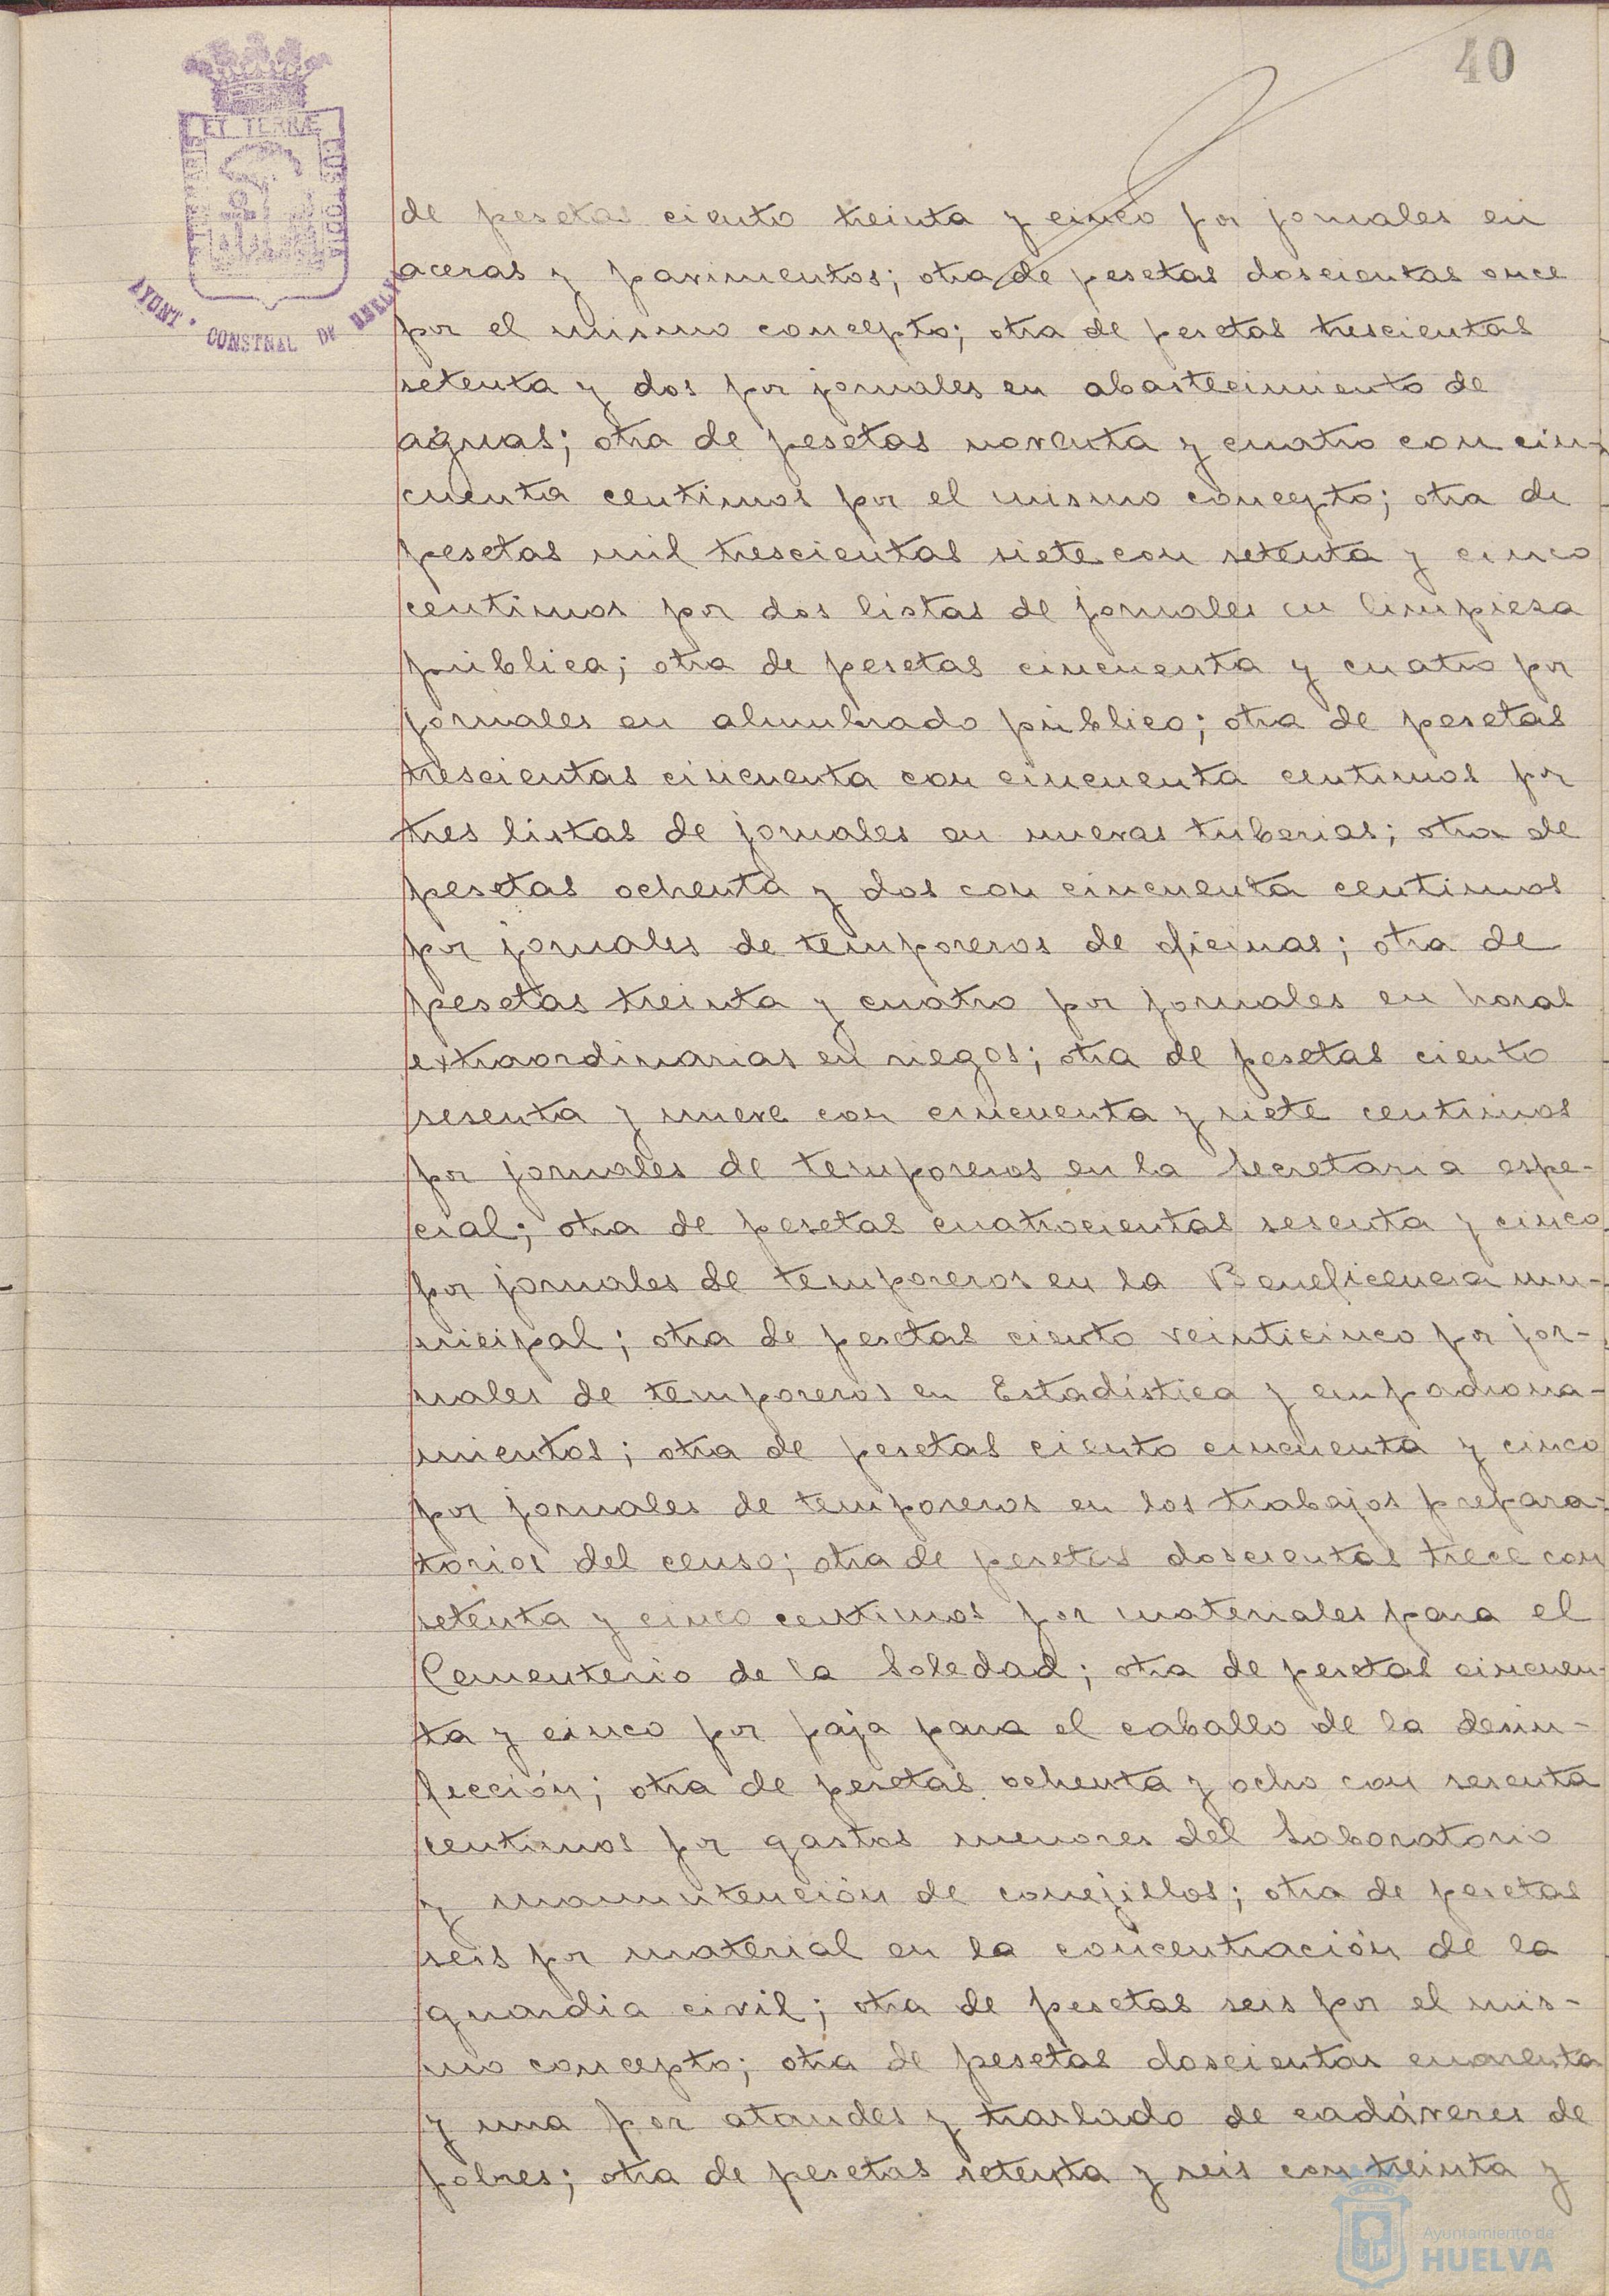 40
ET TERRÆ
AYUNT. CONSTNAL DE HUELVA
de pesetas ciento treinta y cinco por jornales en
aceras y pavimentos; otra de pesetas doscientas once
por el mismo concepto; otra de pesetas trescientas
setenta y dos por jornales en abastecimiento de
aguas; otra de pesetas noventa y cuatro con cin-
cuenta centimos por el mismo concepto; otra de
pesetas mil trescientas siete con setenta y cinco
centimos por dos listas de jornales en limpieza
pública; otra de pesetas cincuenta y cuatro por
jornales en alumbrado público; otra de pesetas
trescientas cincuenta con cincuenta centimos por
tres listas de jornales en nuevas tuberias; otra de
pesetas ochenta y dos con cincuenta centimos
por jornales de temporeros de oficinas; otra de
pesetas treinta y cuatro por jornales en horas
extraordinarias en riegos; otra de pesetas ciento
sesenta y nueve con cincuenta y siete centimos
por jornales de temporeros en la Secretaria espe-
cial; otra de pesetas cuatrocientas sesenta y cinco
por jornales de temporeros en la Beneficencia mu-
nicipal; otra de pesetas ciento veinticinco por jor-
nales de temporeros en Estadística y empadrona-
mientos; otra de pesetas ciento cincuenta y cinco
por jornales de temporeros en los trabajos prepara-
torios del censo; otra de pesetas doscientas trece con
setenta y cinco centimos por materiales para el
Cementerio de la Soledad; otra de pesetas cincuen-
ta y cinco por paja para el caballo de la desin-
fección; otra de pesetas ochenta y ocho con sesenta
centimos por gastos menores del Laboratorio
y manutención de conejillos; otra de pesetas
seis por material en la concentración de la
guardia civil; otra de pesetas seis por el mis-
mo concepto; otra de pesetas doscientas cuarenta
y una por ataudes y traslado de cadáveres de
pobres; otra de pesetas setenta y seis con treinta y
Ayuntamiento de
HUELVA